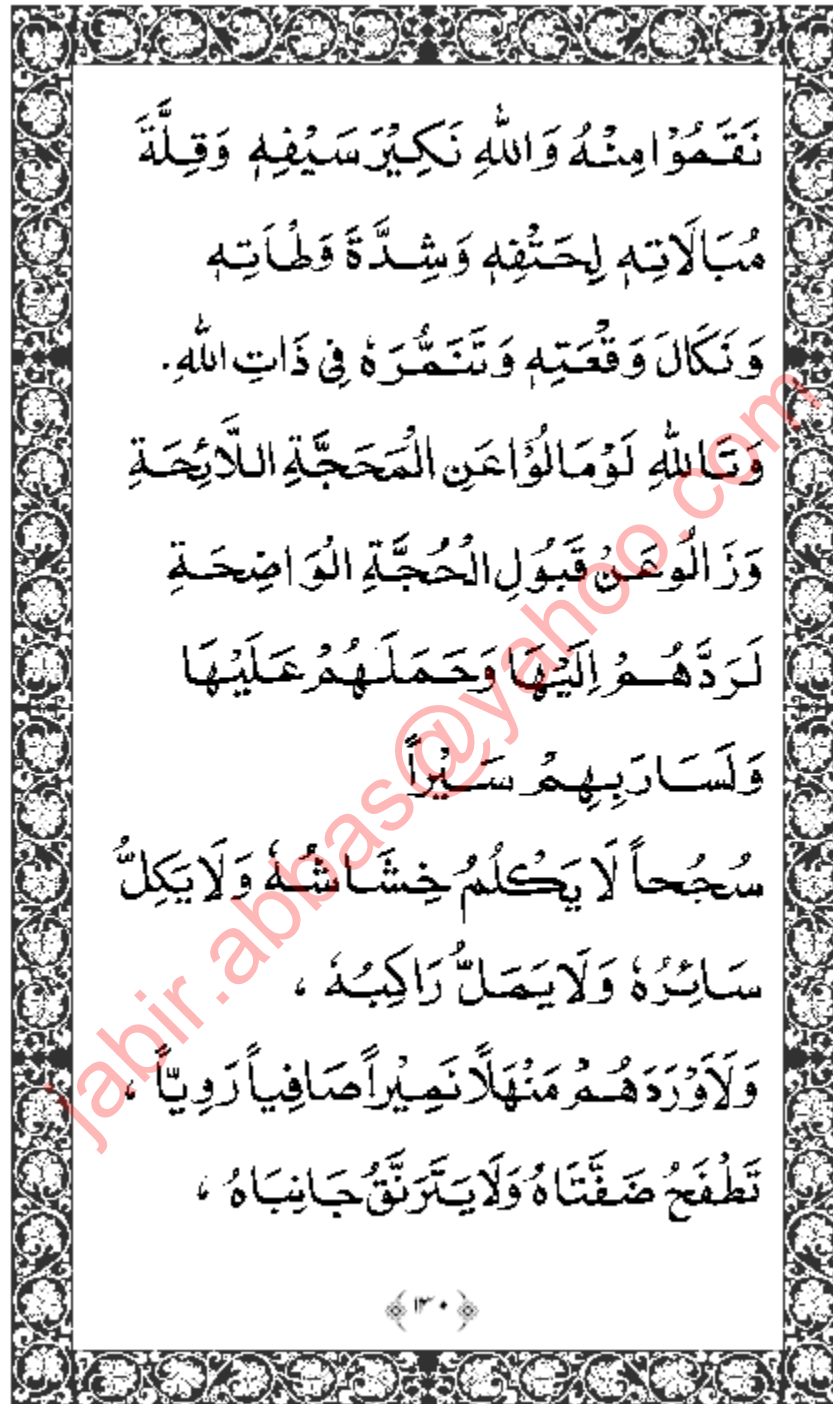 نَقَمُوْا مِنْهُ وَاللهِ نَكِيْرَ سَيْفِهٖ وَقِلَّةَ
مُبَالَاتِهٖ لِحَتْفِهٖ وَشِدَّةَ وَطْاَتِهٖ
وَنَكَالَ وَقْعَتِهٖ وَتَنَمُّرَهٗ فِىْ ذَاتِ اللهِ.
وَتَاللهِ لَوْمَالُوْا عَنِ الْمَحَجَّةِ اللَّائِحَةِ
وَزَالُّوعَنْ قَبُوْلِ الْحُجَّةِ الْوَاضِحَةِ
لَرَدَّهُمْ اِلَيْهَا وَحَمَلَهُمْ عَلَيْهَا
وَلَسَارَبِهِمْ سَيْراً
سُجُحاً لَا يَكْلُمُ خِشَاشُهٗ وَلَا يَكِلُّ
سَائِرُهٗ وَلَا يَمَلُّ رَاكِبُهٗ ،
وَلَاَوْرَدَهُمْ مَنْهَلًا نَمِيْراً صَافِياً رَوِيّاً ،
تَطْفَحُ ضَفَّتَاهُ وَلَا يَتَرَنَّقُ جَانِبَاهُ ،
﴿۱۳۰﴾
jabir.abbas@yahoo.com